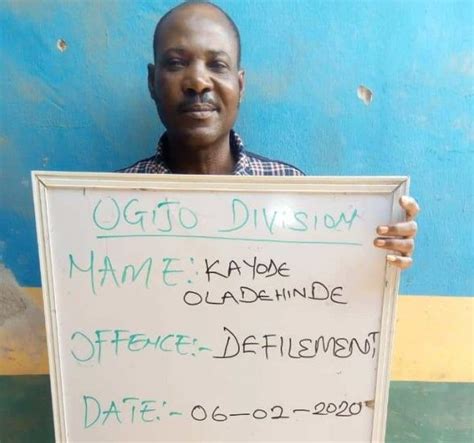 OGIJO DIVISION
NAME:- KAYODE
OLADEHINDE
OFFENCE:- DEFILEMENT
DATE:- 06-02-2020